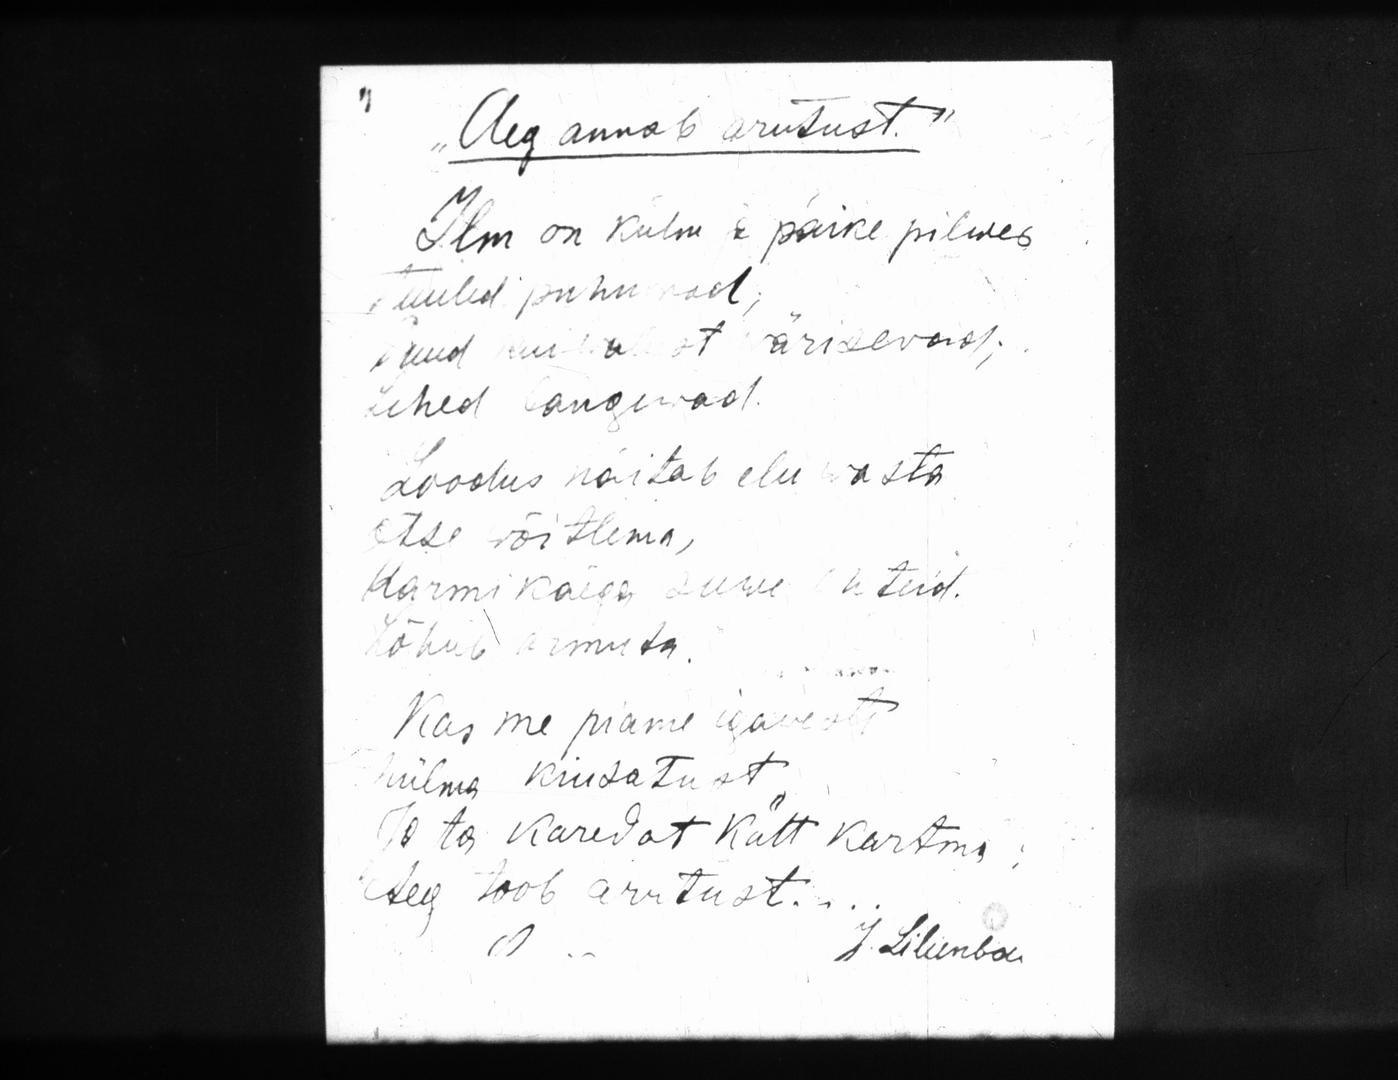 „Aeg annab arutust."
Ilm on külm ja päike pilwes
Tuuled puhuwad,
Puud wärisevad;
Lehed langewad.
Loodus näitab elu wasta
Otse wõitlema,
Karmi käega suwe teid.
Lõhub armuta.
Kas me piame igawest
külma kiusatust,
Ja ta karedat kätt kartma;
Aeg toob arutust....
J. Lilienba